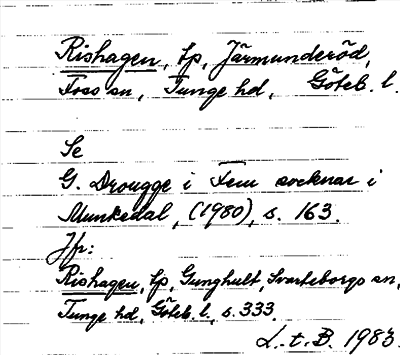 Rishagen, tp, Järmunderöd,
Foss sn, Tunge hd, Göteb. l.
Se
G. Drougge i Fem socknar i
Munkedal, (1980), s. 163.
Jfr:
Rishagen, tp, Gunghult, Svarteborgs sn,
Tunge hd, Göteb. l, s. 333.
L.-t. B. 1983.